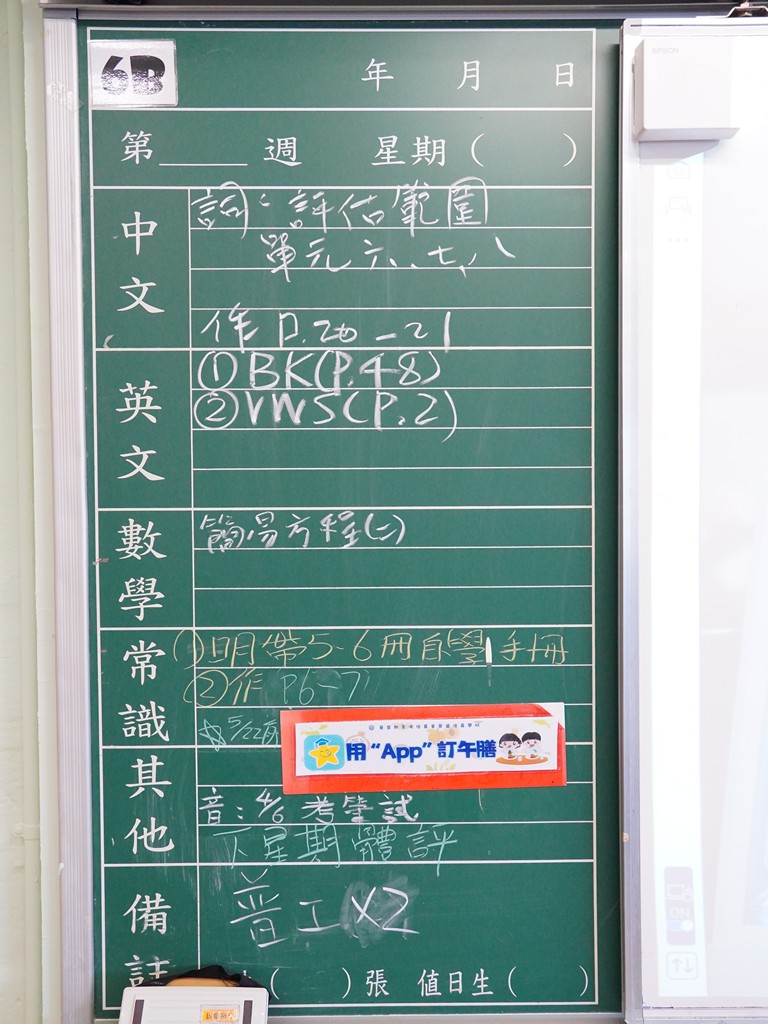 6B
年 月 日
第 週 星期( )
中文
詞:評估範圍
單元六、七、八
作 P.20-21
英文
①BK(P.48)
②VWS(P.2)
數學
簡易方程(二)
常識
①明帶5-6冊自學手冊
②作 P6-7
☆5/22前
用“App”訂午膳
其他
音:4/6 考筆試
下星期體評
備註
普工X2
( )張 值日生( )
EPSON
ON